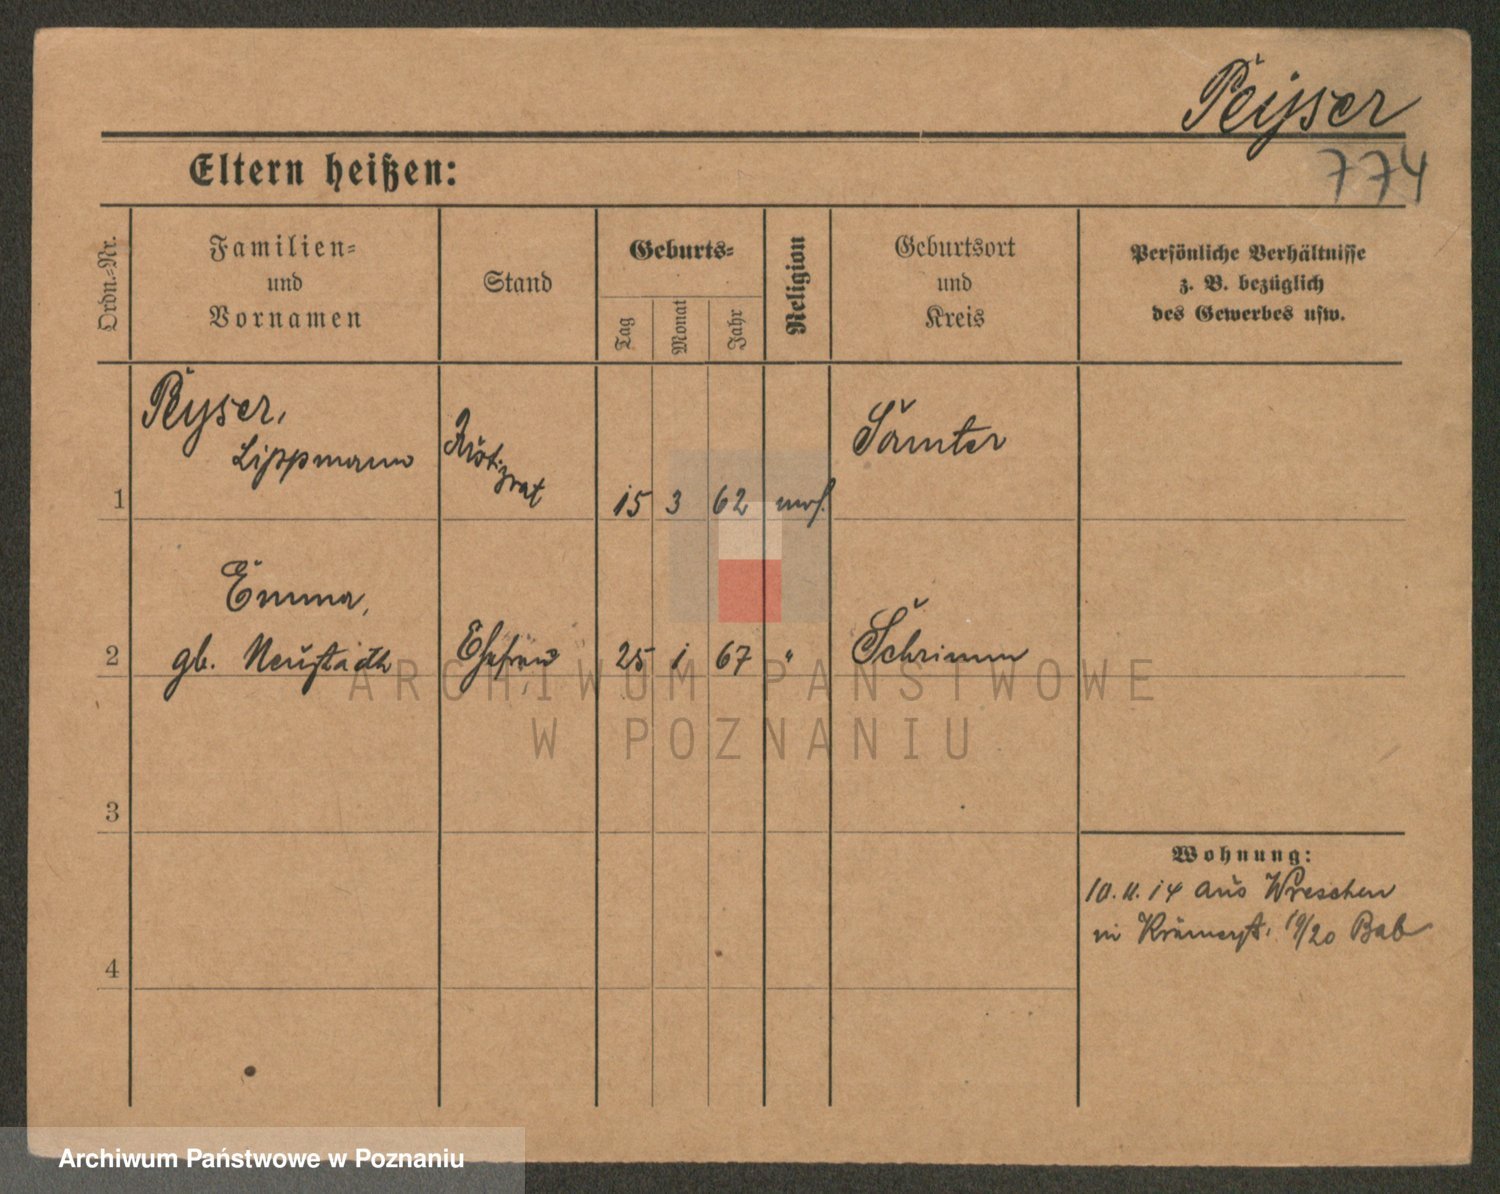 Peyser
774
Eltern heißen:
Ordn.-Nr.
Familien-
und
Vornamen
Stand
Geburts-
Tag
Monat
Jahr
Religion
Geburtsort
und
Kreis
Persönliche Verhältnisse
z. B. bezüglich
des Gewerbes usw.
1
Peyser,
Lippmann
Justizrat
15 3 62 mos.
Samter
2
Emma,
gb. Neustadt
Ehefrau
25 1 67 "
Schrimm
3
4
Wohnung:
10. 11. 14 aus Wreschen
in 19/20 Bab
ARCHIWUM PAŃSTWOWE
W POZNANIU
Archiwum Państwowe w Poznaniu